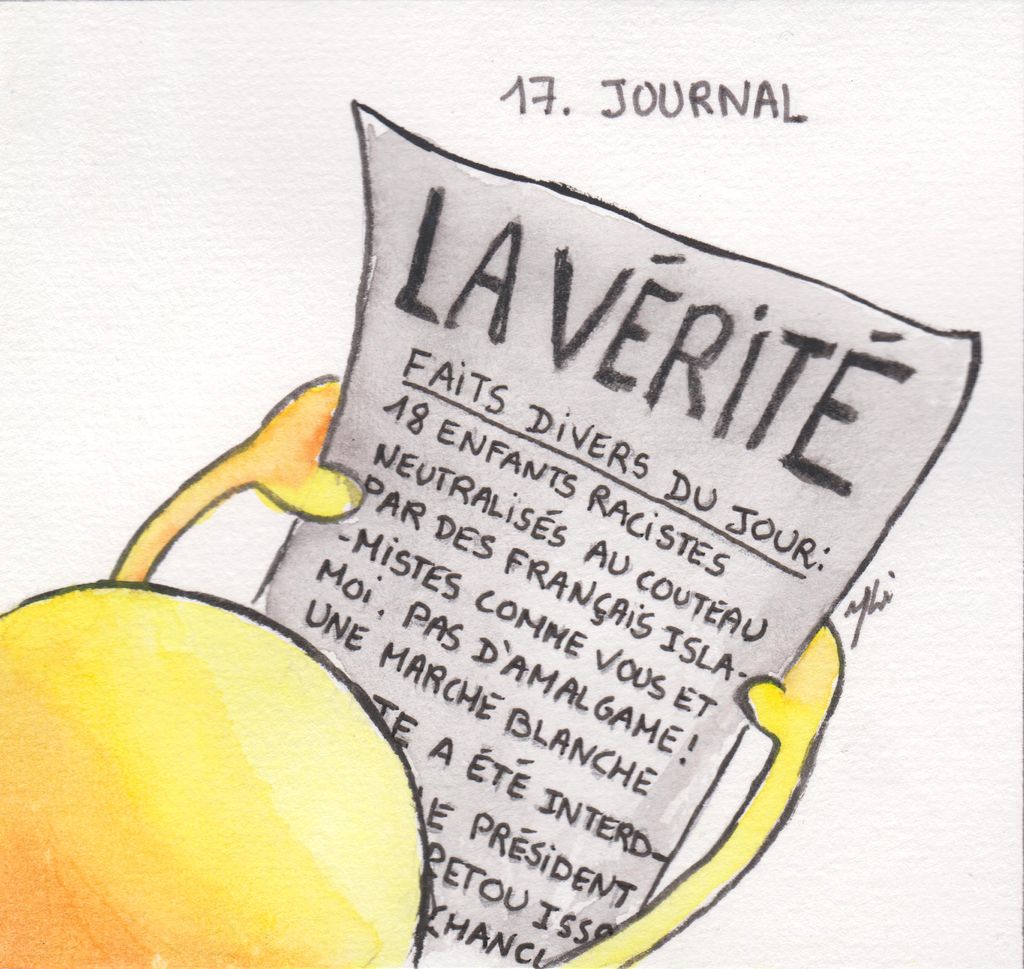 17. JOURNAL
LA VÉRITÉ
FAITS DIVERS DU JOUR:
18 ENFANTS RACISTES
NEUTRALISÉS AU COUTEAU
PAR DES FRANÇAIS ISLA-
-MISTES COMME VOUS ET
MOI. PAS D'AMALGAME!
UNE MARCHE BLANCHE
TE A ÉTÉ INTERD-
LE PRÉSIDENT
RETOU ISSA
CHANCL